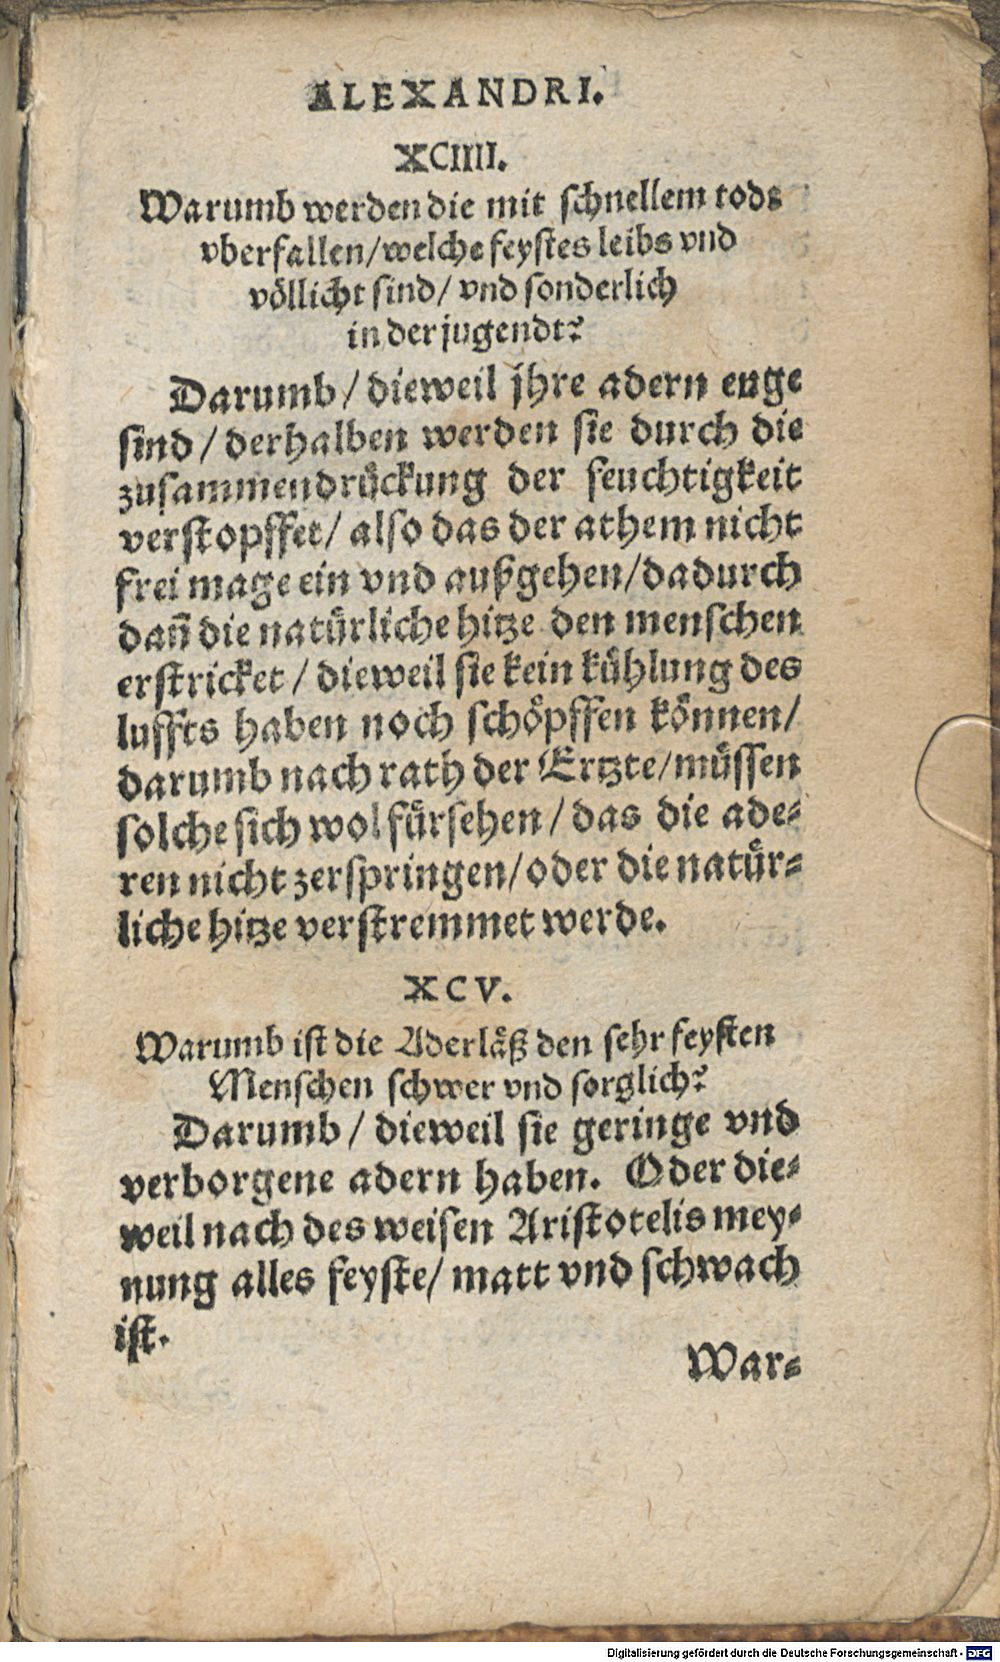 ALEXANDRI.
XCIIII.
Warumb werden die mit schnellem tods
vberfallen/welche feystes leibs vnd
völlicht sind/ vnd sonderlich
in der jugendt?
Darumb/ dieweil jhre adern enge
sind/ derhalben werden sie durch die
zusammendrückung der feuchtigkeit
verstopffet/ also das der athem nicht
frei mage ein vnd außgehen/dadurch
dañ die natürliche hitze den menschen
erstricket/ dieweil sie kein kühlung des
luffts haben noch schöpffen können/
darumb nach rath der Ertzte/müssen
solche sich wol fürsehen/das die ade-
ren nicht zerspringen/oder die natür-
liche hitze verstremmet werde.
XCV.
Warumb ist die Aderläß den sehr feysten
Menschen schwer vnd sorglich?
Darumb/ dieweil sie geringe vnd
verborgene adern haben. Oder die-
weil nach des weisen Aristotelis mey-
nung alles feyste/ matt vnd schwach
ist.
War-
Digitalisierung gefördert durch die Deutsche Forschungsgemeinschaft - DFG